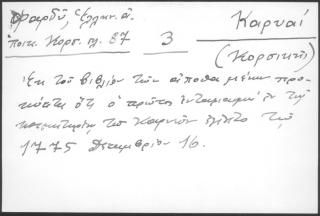 Φαρδύ, Ἑλλην. ἀ.
ἀποικ. Κορσ. σλ. 87
3
Καρυαί
(Κορσικῆς)
Ἐκ τοῦ βιβλίου τῶν ἀποθα μένων προ-
κύπτει ὅτι ὁ πρῶτος ἐνταφιασμὸς ἐν τῷ
τῶν Καρυῶν ἐγένετο τῇ
1775 Δεκεμβρίου 16.